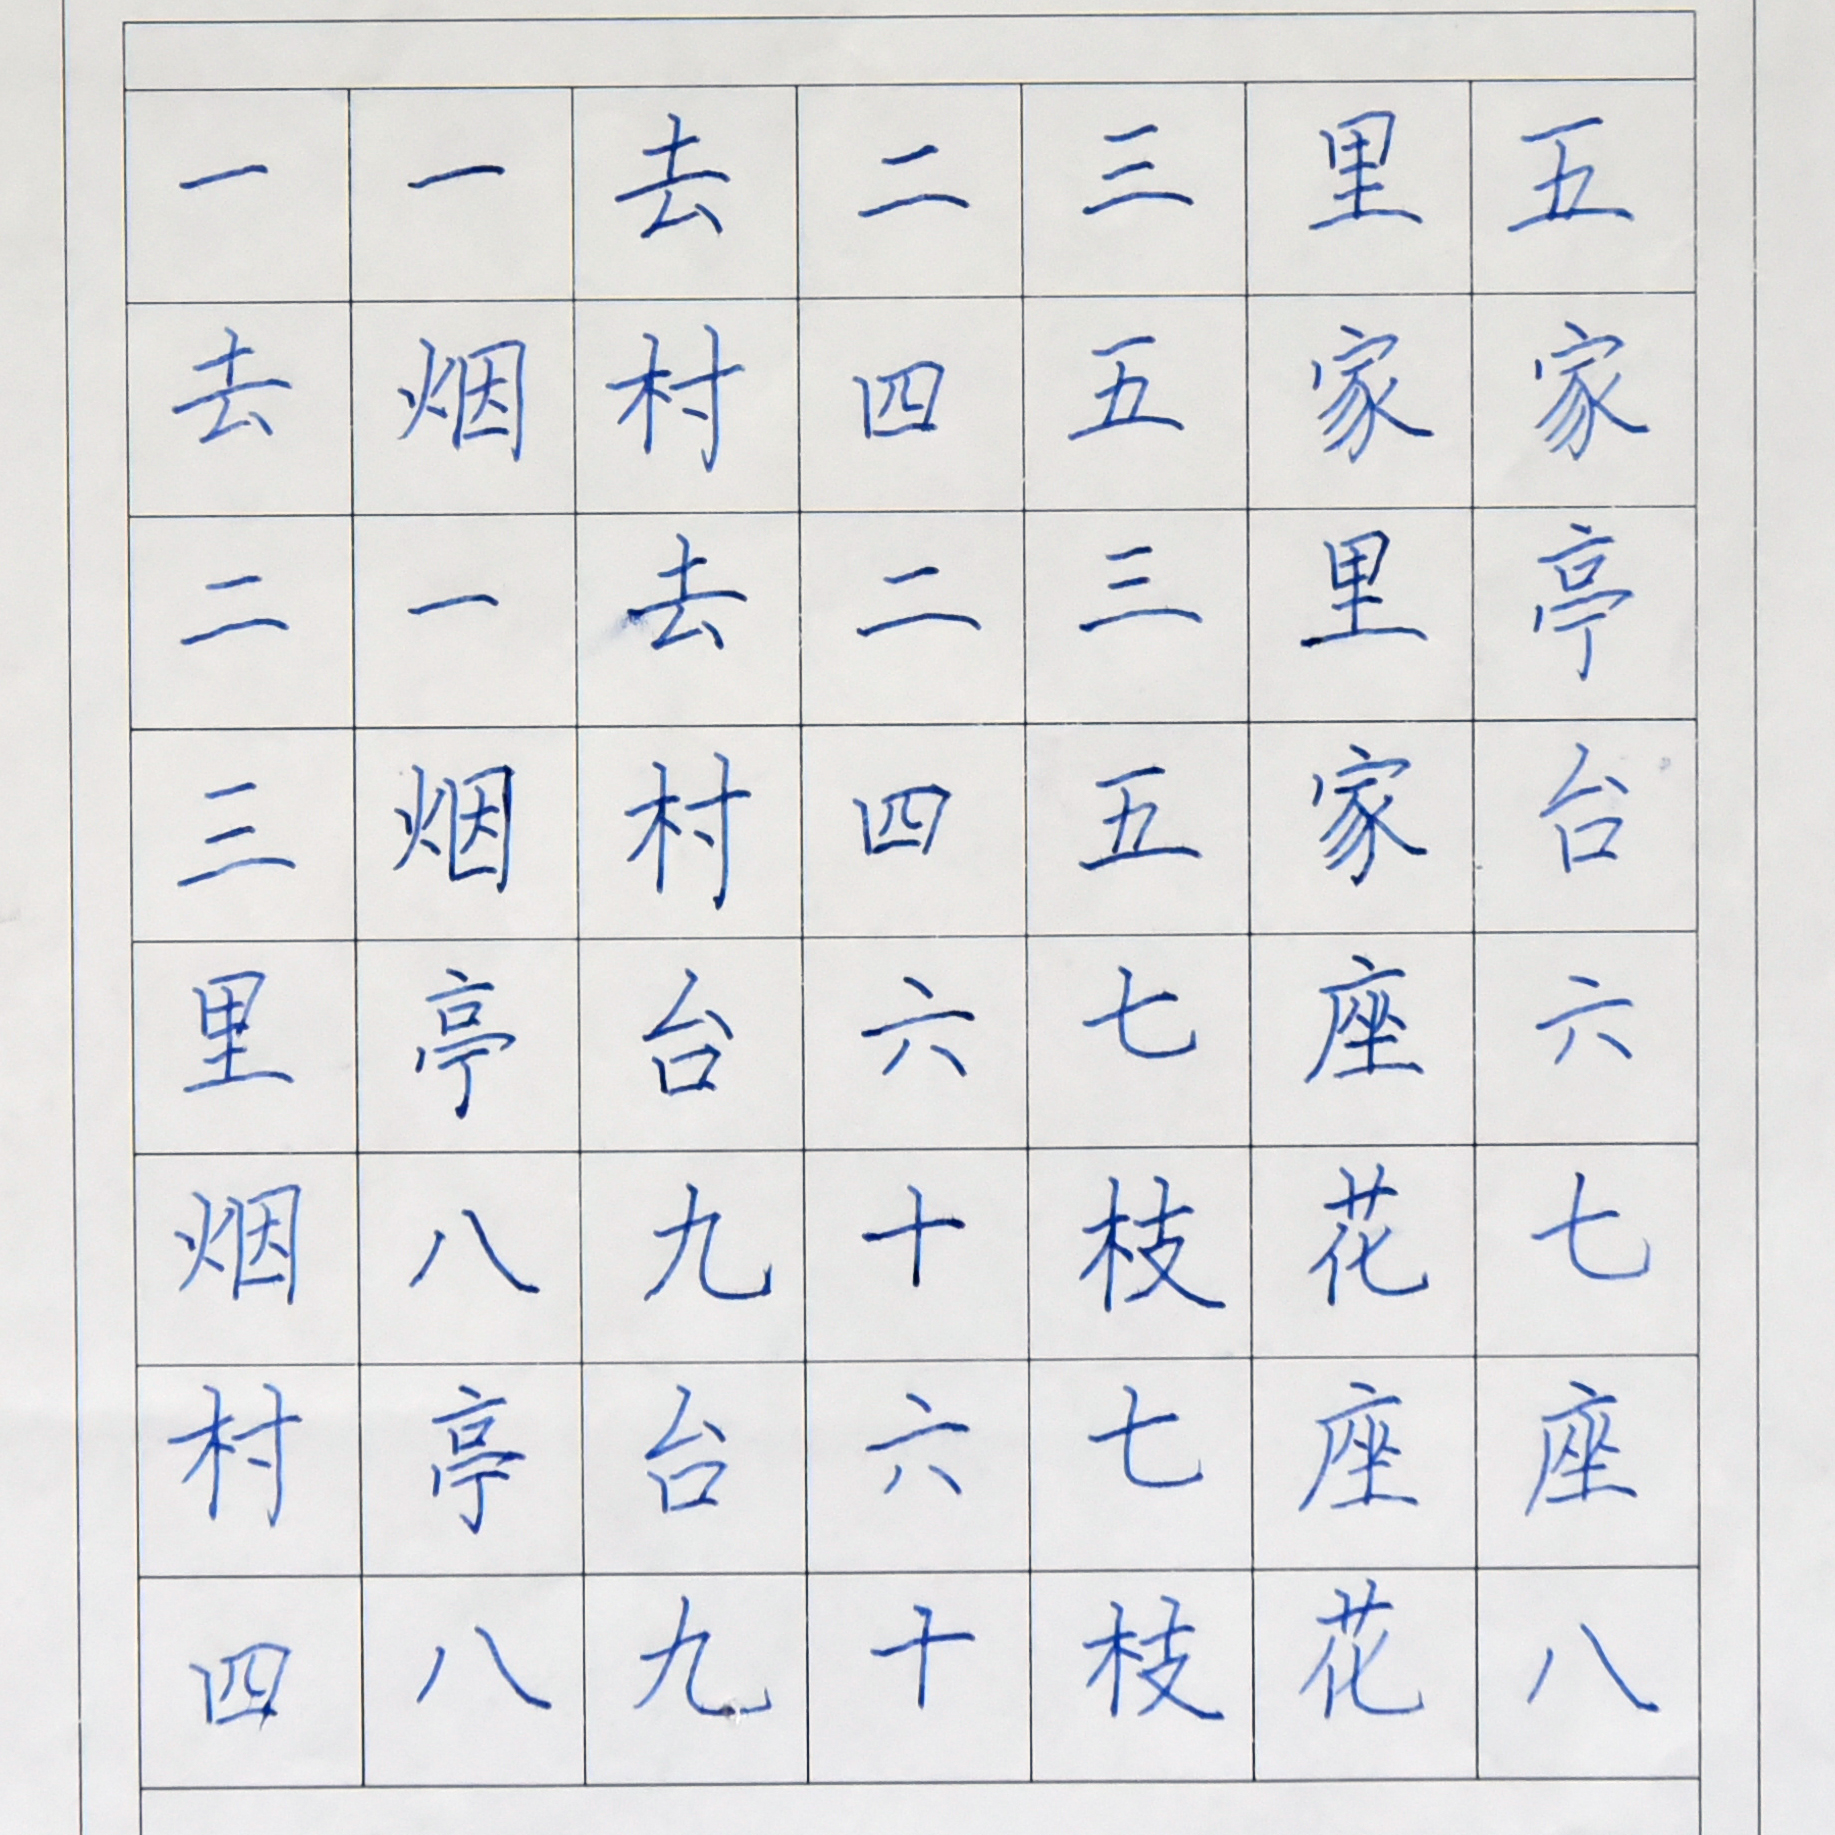 一一去二三里五
去烟村四五家家
二一去二三里亭
三烟村四五家台
里亭台六七座六
烟八九十枝花七
村亭台六七座座
四八九十枝花八